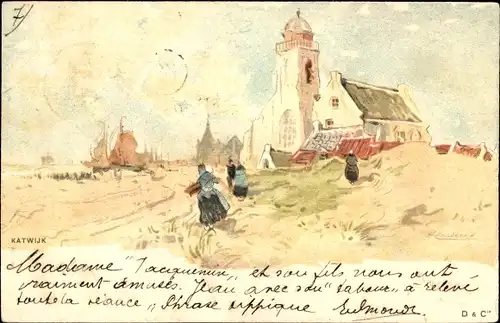 7)
KATWIJK
Madame "Jacquemin", et son fils nous ont
vraiment amusés. Jean avec son "tabour" a relevé
toute la séance, Phrase typique Edmonde.
D & Cⁱᵉ